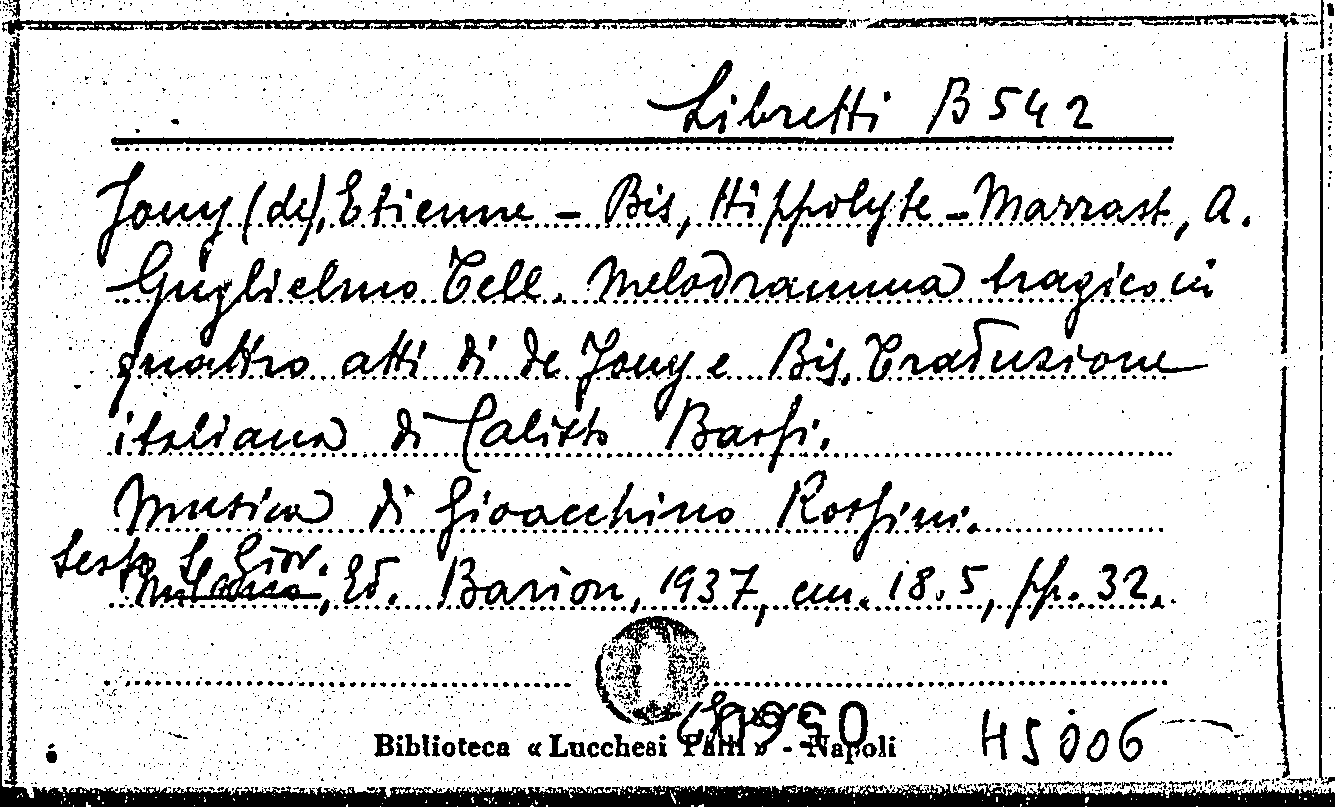 Libretti B 542
Jouy (de), Etienne - Bis, Hippolyte - Marrast, A.
Guglielmo Tell. Melodramma tragico in
quattro atti di de Jouy e Bis. Traduzione
italiana di Calisto Bassi.
Musica di Gioacchino Rossini.
Sesto S. Giov.
Milano, Ed. Barion, 1937, cm. 18.5, pp. 32.
Biblioteca « Lucchesi Palli » - Napoli
45006